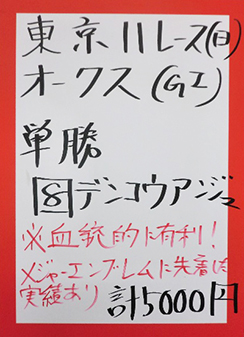 東京11レース(日)
オークス(GI)
単勝
8デンコウアンジュ
※血統的に有利!
メジャーエンブレムに先着した
実績あり 計5000円